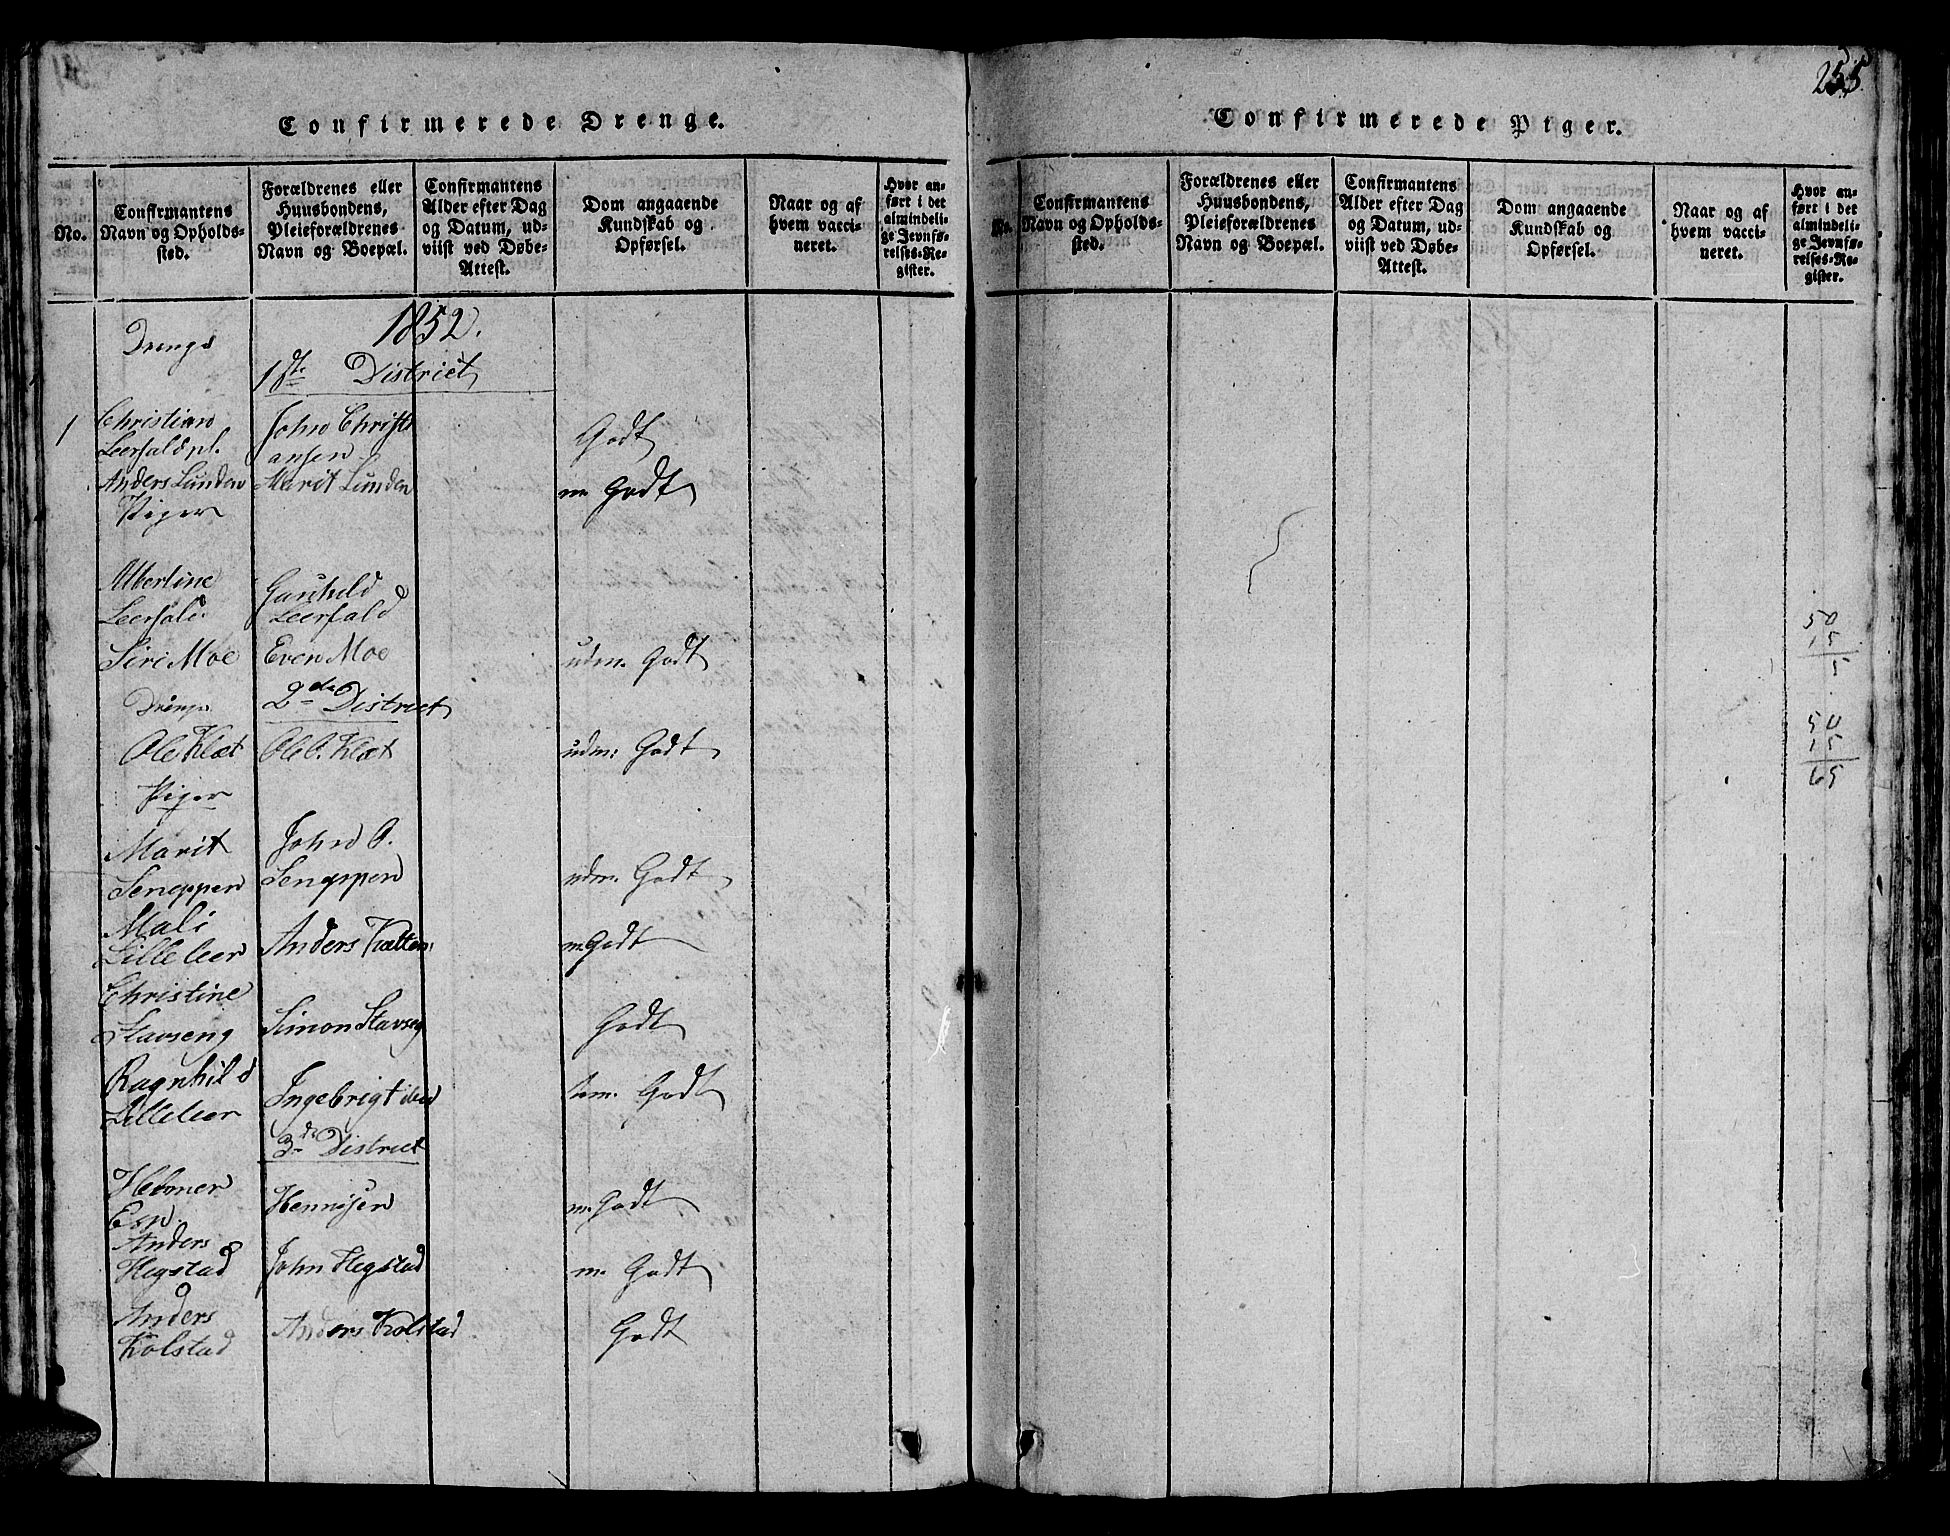 Confirmerede Drenge.
No.
Confirmantens
Navn og Opholds-
sted.
Forældrenes eller
Huusbondens,
Pleieforældrenes
Navn og Boepæl.
Confirmantens
Alder efter Dag
og Datum, ud-
viist ved Døbe-
Attest.
Dom angaaende
Kundskab og
Opførsel.
Naar og af
hvem vacci-
neret.
Hvor an-
ført i det
almindeli-
ge Jevnfø-
relses-Re-
gister.
1852.
Drenge
1ste District
1 Christian John Christi
Leerfald pl. ansen Godt
Anders Lunden Marit Lunden m. Godt
Piger
Albertine Gunhild
Leerfald Leerfald
Siri Moe Even Moe udm. Godt
Drenge 2de District
Ole Klæt Ole O. Klæt udm: Godt
Piger
Marit John O.
Sengppen Sengppen udm. Godt
Mali
Lilleleer Anders m. Godt
Christine
Stavseng Simon Stavseng Godt
Ragnhild
Lilleleer Ingebrigt Godt
3de District
Helmer
Esp. m. Godt
Anders
Hegstad John Hegstad m. Godt
Anders
Kolstad Anders Kolstad Godt
255
Confirmerede Piger.
No.
Confirmantens
Navn og Opholds-
sted.
Forældrenes eller
Huusbondens,
Pleieforældrenes
Navn og Boepæl.
Confirmantens
Alder efter Dag
og Datum, ud-
viist ved Døbe-
Attest.
Dom angaaende
Kundskab og
Opførsel.
Naar og af
hvem vacci-
neret.
Hvor an-
ført i det
almindeli-
ge Jevnfø-
relses-Re-
gister.
50
15
5
50
15
65